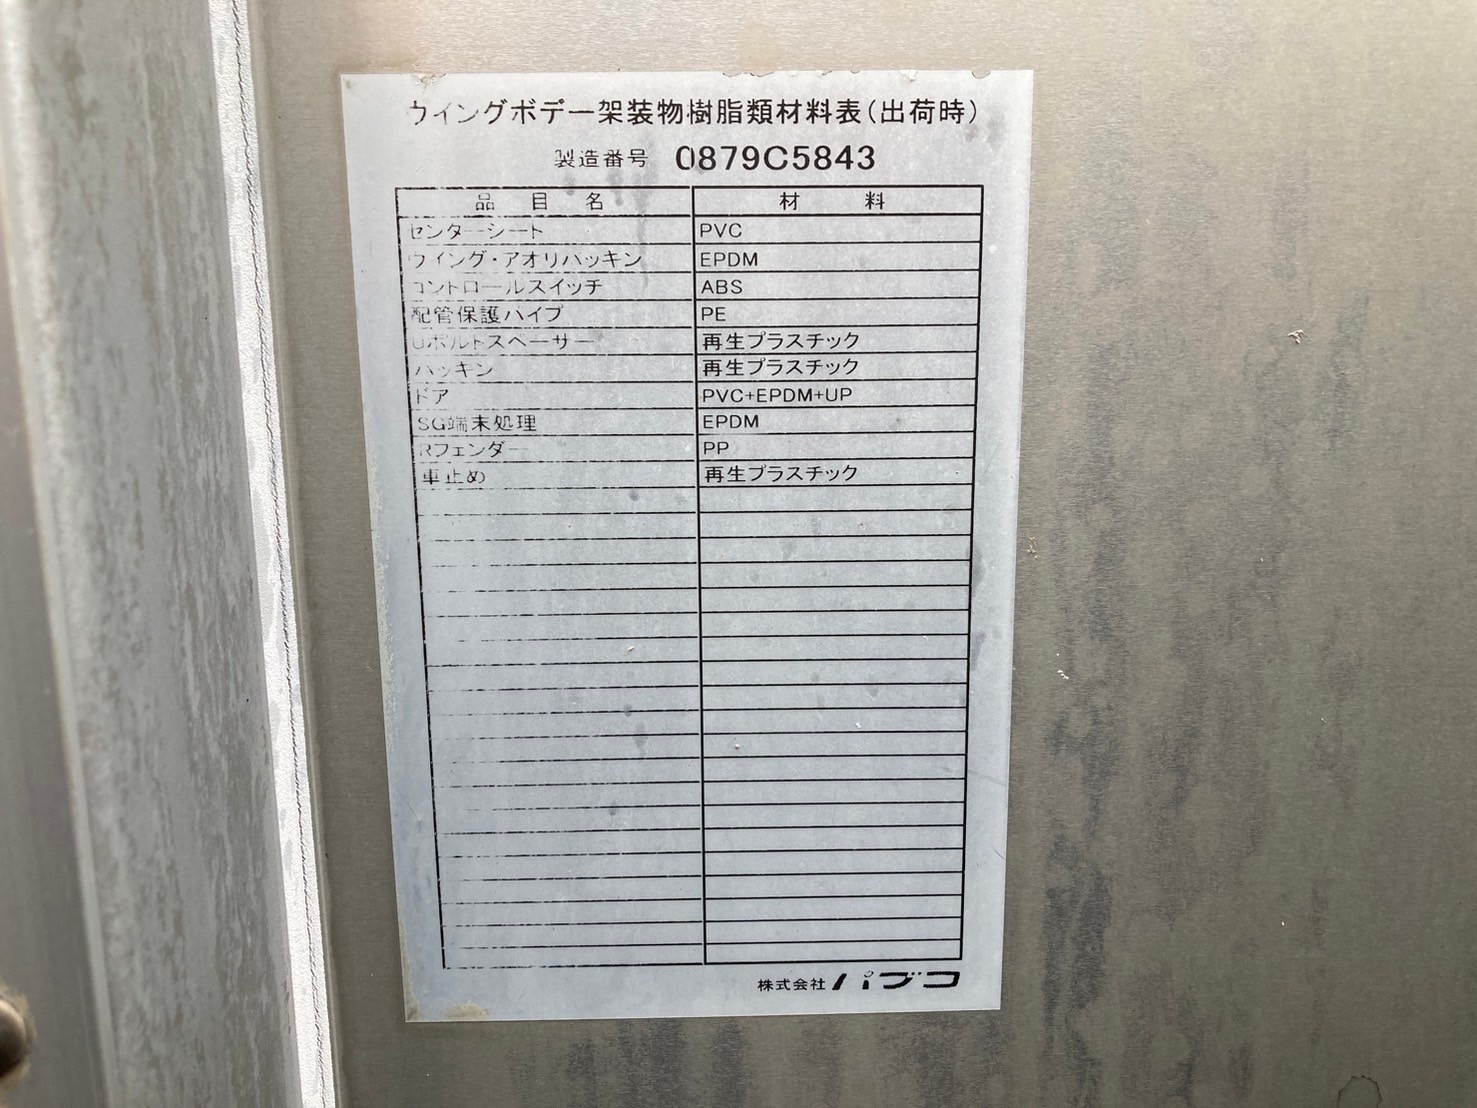 ウイングボデー架装物樹脂類材料表(出荷時)
製造番号 0879C5843
品目名 材料
センターシート PVC
ウイング・アオリパッキン EPDM
コントロールスイッチ ABS
配管保護パイプ PE
Uボルトスペーサー 再生プラスチック
パッキン 再生プラスチック
ドア PVC+EPDM+UP
SG端末処理 EPDM
Rフェンダー PP
車止め 再生プラスチック
株式会社パブコ